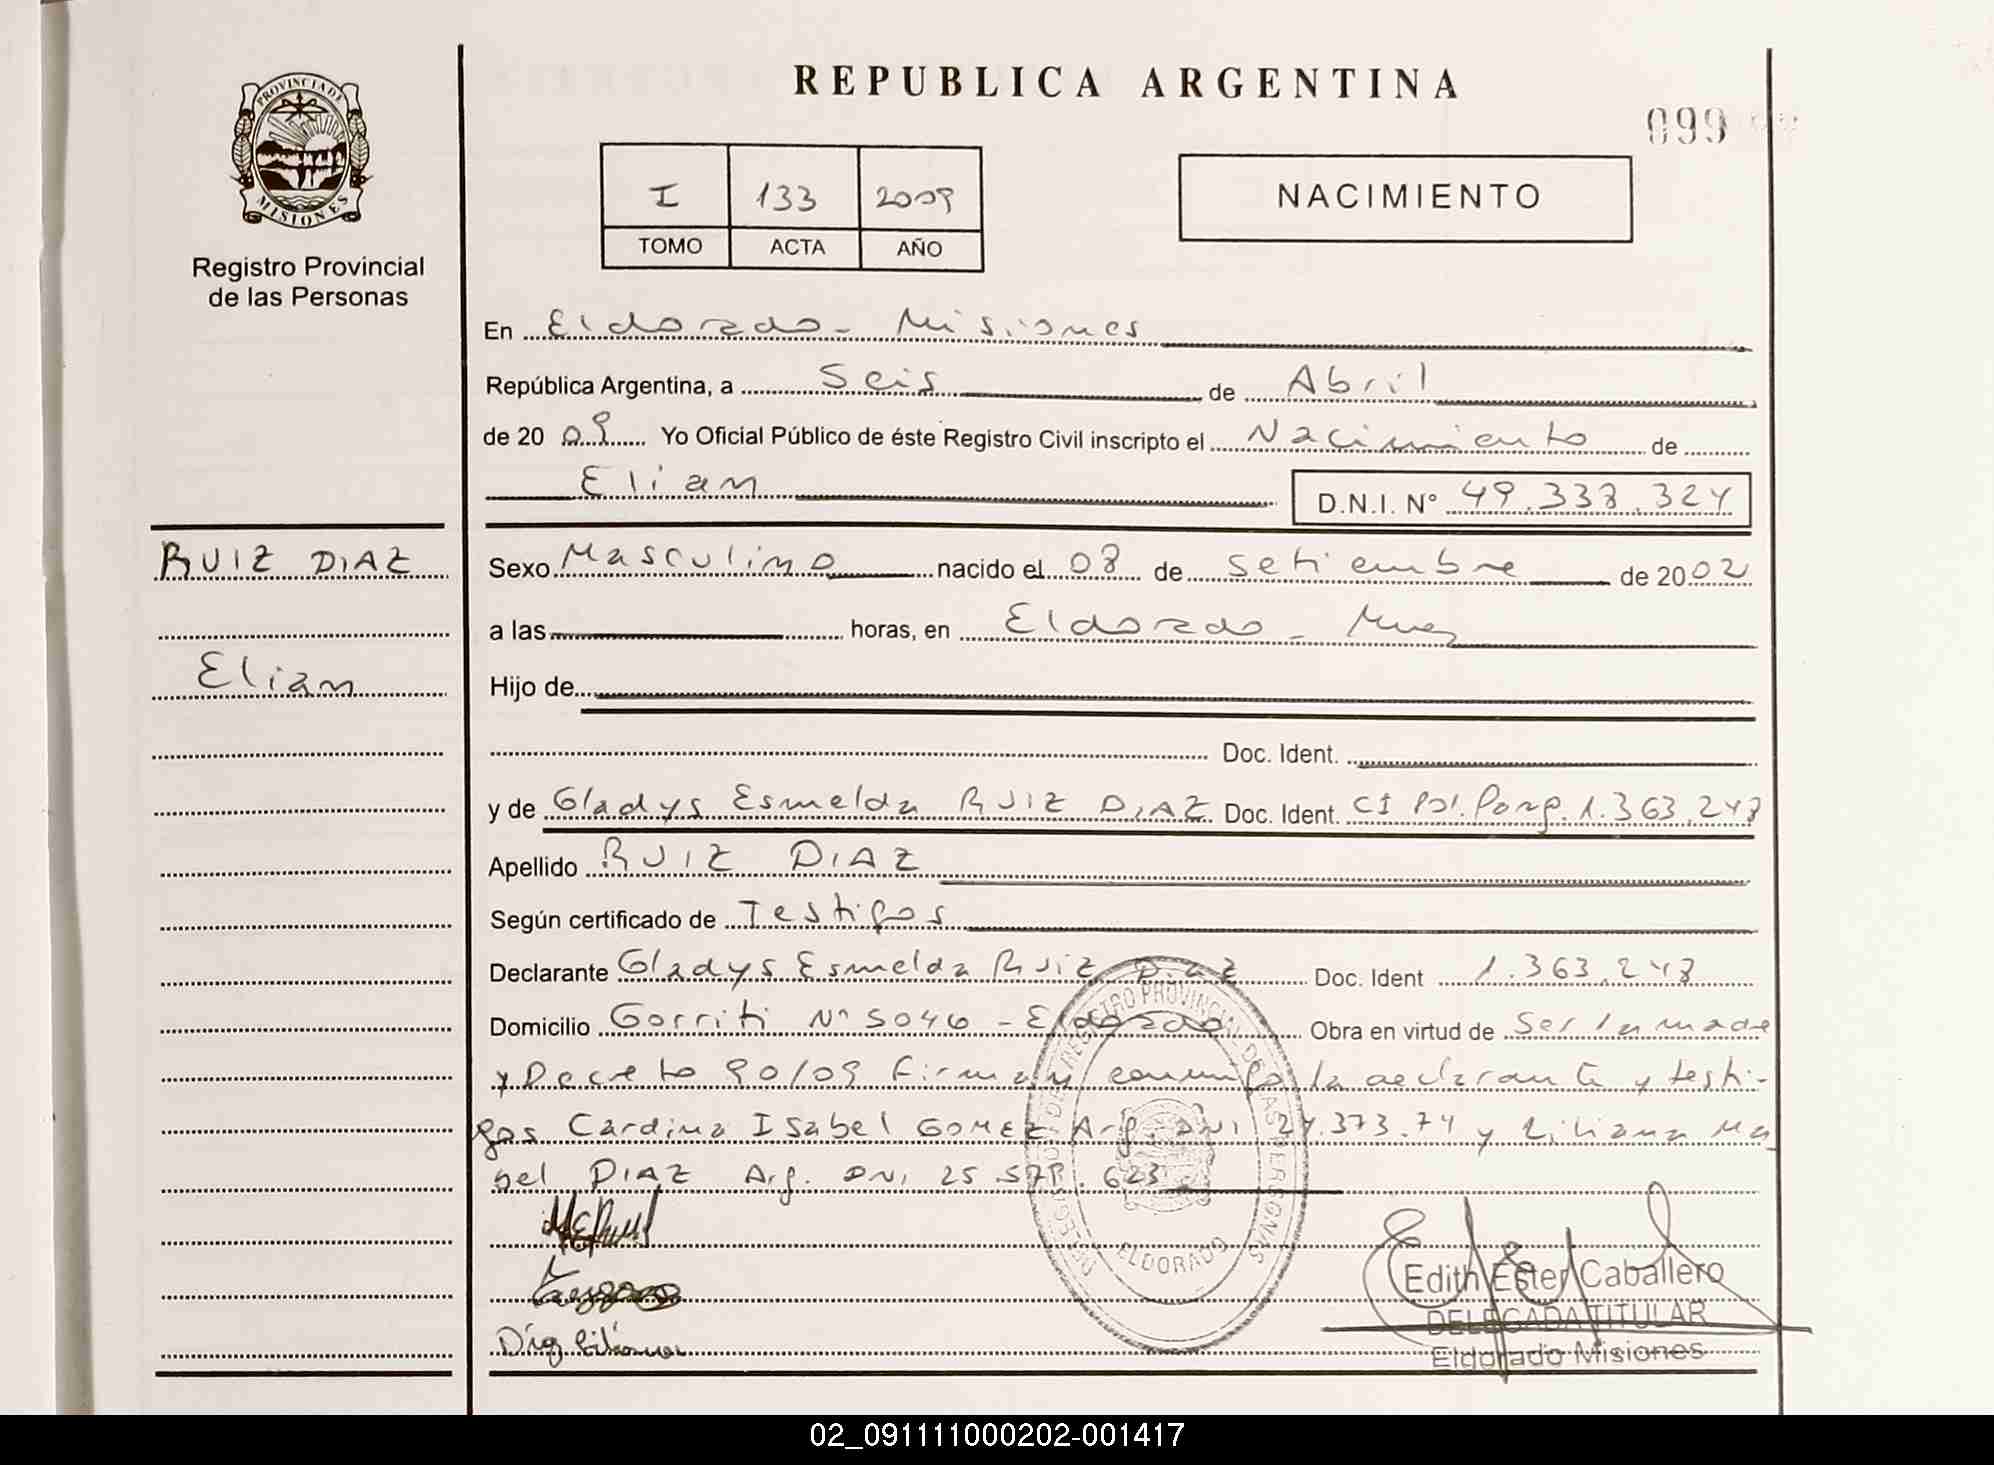 REPUBLICA ARGENTINA
099
PROVINCIA DE
MISIONES
Registro Provincial
de las Personas
I 133 2009
TOMO ACTA AÑO
NACIMIENTO
En Eldorado - Misiones
República Argentina, a Seis de Abril
de 20 09 Yo Oficial Público de éste Registro Civil inscripto el Nacimiento de
Elian D.N.I. N° 49.338.324
RUIZ DIAZ
Elian
Sexo Masculino nacido el 08 de Setiembre de 2002
a las horas, en Eldorado - Mnes
Hijo de
Doc. Ident.
y de Gladys Esmelda RUIZ DIAZ Doc. Ident. CI Pol. Parag. 1.363.243
Apellido RUIZ DIAZ
Según certificado de Testigos
Declarante Gladys Esmelda Ruiz Diaz Doc. Ident 1.363.243
Domicilio Gorriti N° 5046 - Eldorado Obra en virtud de Ser la madre
y Decreto 90/09 Firman conmigo la declarante y testi-
gos Cardina Isabel GOMEZ Arg. DNI 24.373.74 y Liliana Ma
bel DIAZ Arg. DNI 25.578.623
Diaz Liliana
DIRECCION DEL REGISTRO PROVINCIAL DE LAS PERSONAS
ELDORADO
Edith Ester Caballero
DELEGADA TITULAR
Eldorado Misiones
02_091111000202-001417